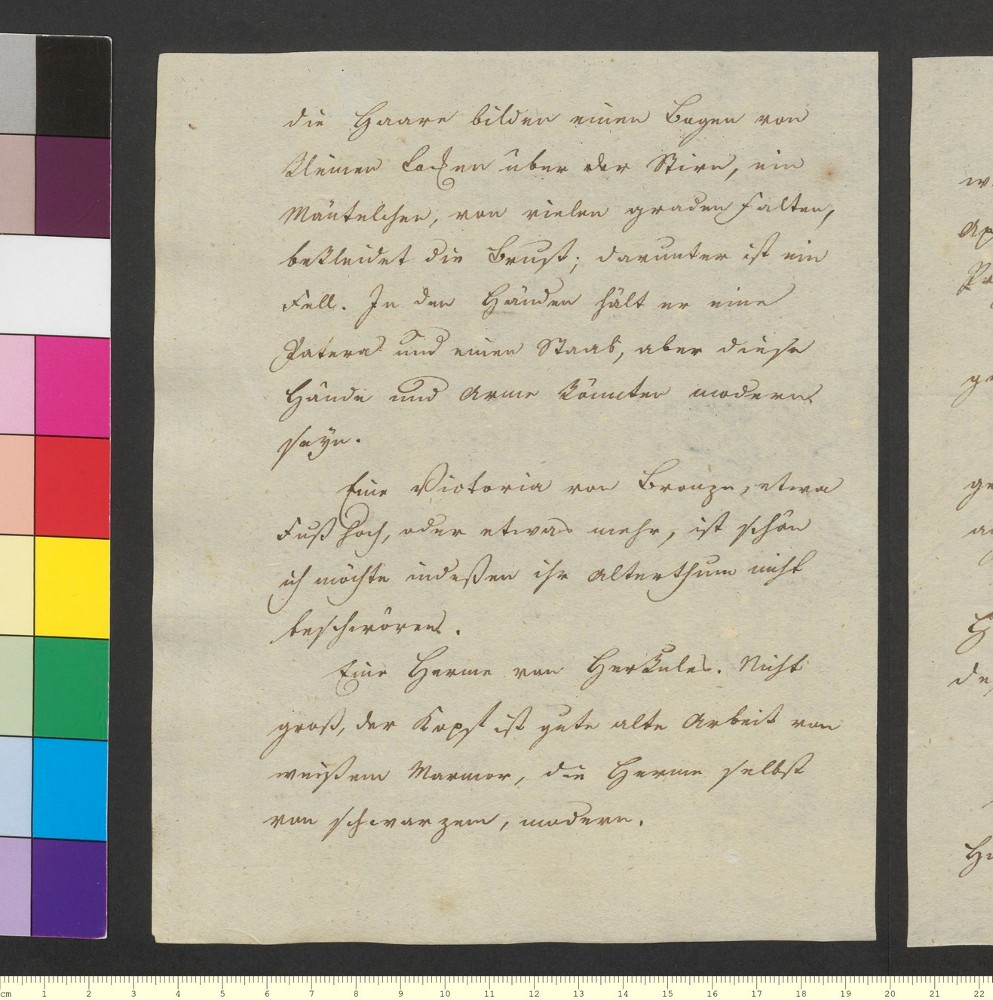 die Haare bilden einen Bogen von
kleinen Locken über der Stirn, ein
Mäntelchen, von vielen graden Falten,
bekleidet die Brust; darunter ist ein
Fell. In den Händen hält er eine
Patera und einen Staab, aber diese
Hände und Arme könnten modern
seyn.
Eine Victoria von Bronze, etwa
Fuß hoch, oder etwas mehr, ist schön
ich möchte indeßen ihr Alterthum nicht
beschwören.
Eine Herme von Herkules. Nicht
groß, der Kopf ist gute alte Arbeit von
weißem Marmor, die Herme selbst
von schwarzem, modern.
cm 1 2 3 4 5 6 7 8 9 10 11 12 13 14 15 16 17 18 19 20 21 22